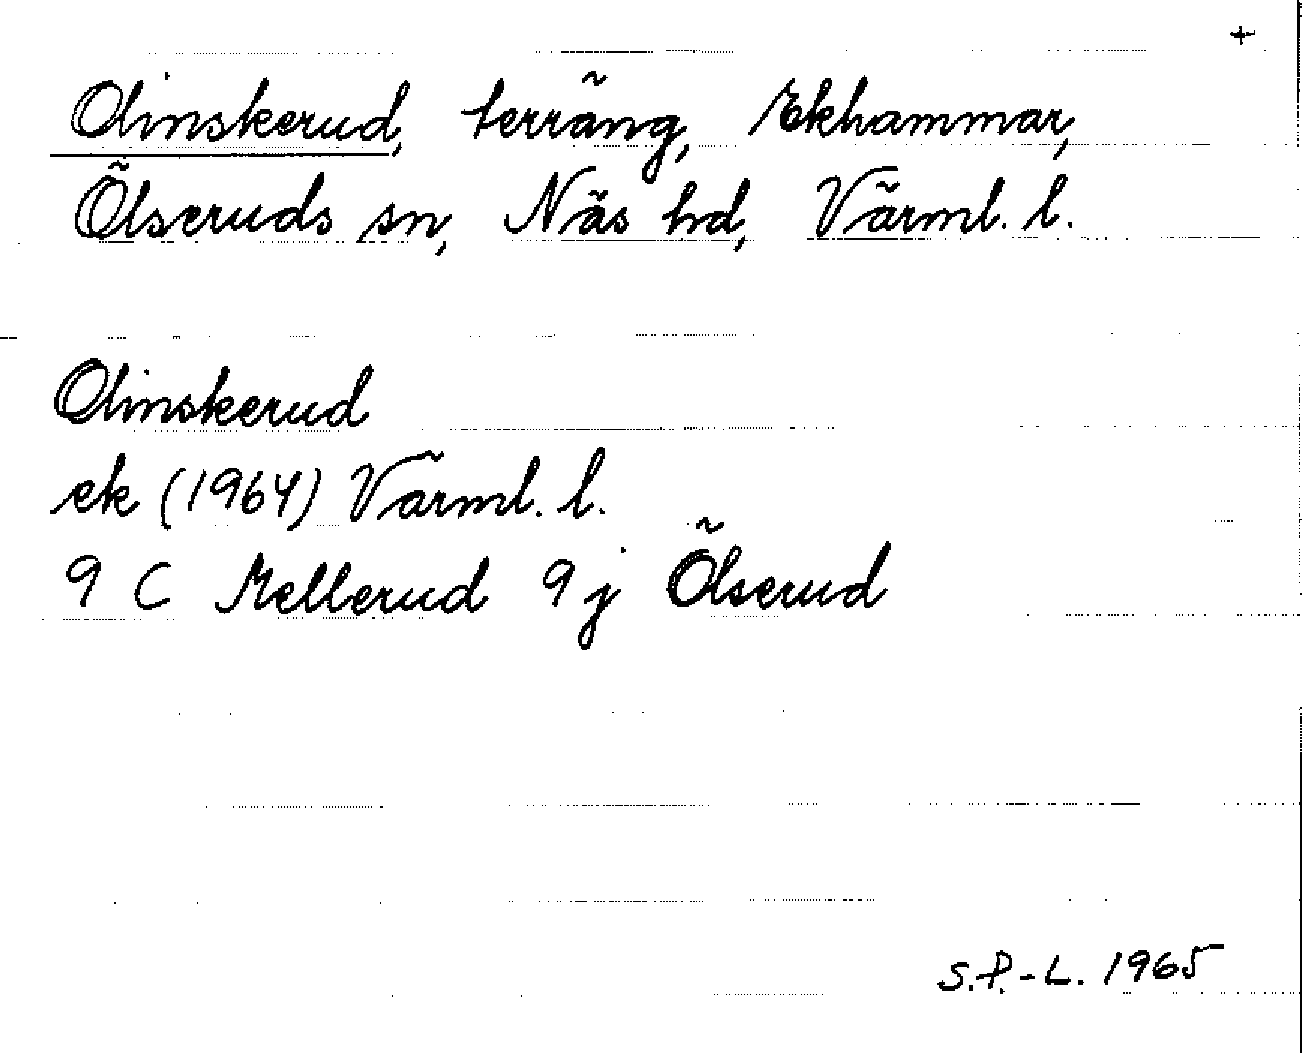 +
Olinskerud, terräng, Ekhammar,
Ölseruds sn, Näs hd, Värml. l.
Olinskerud
ek (1964) Värml. l.
9 C Mellerud 9 j Ölserud
S.P.-L. 1965